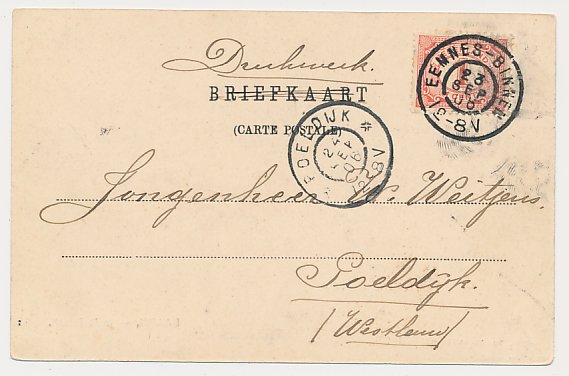 Drukwerk.
BRIEFKAART
(CARTE POSTALE)
EEMNES-BINNEN
23
SEP
06
POELDIJK
24
SEP
06
Jongenheer W. Weitjens.
Poeldijk.
(Westland)